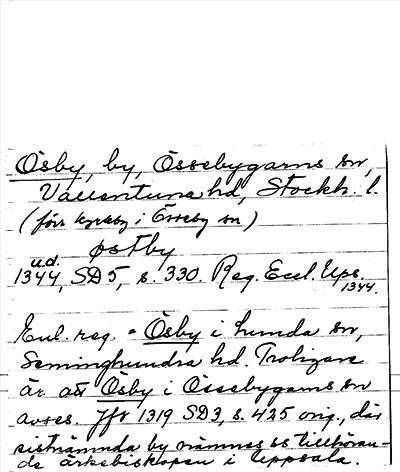 Ösby, by, Össebygarns sn,
Vallentuna hd, Stockh. l.
(förr kyrkby i Össeby sn)
østby
u.d.
1344, SD 5, s. 330. Reg. Eccl. Ups.
1344.
Enl. reg. = Ösby i Lunda sn,
Seminghundra hd. Troligare
är att Ösby i Össebygarns sn
avses. Jfr 1319 SD3, s. 425 orig., där
sistnämnda by nämnes ss tillhöran-
de ärkebiskopen i Uppsala.